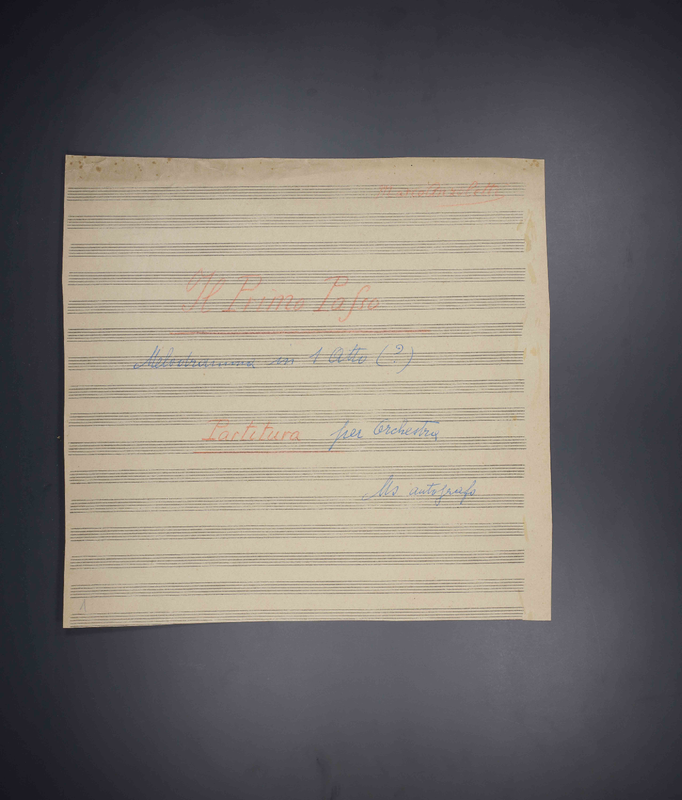 Il Primo Passo
Melodramma in 1 Atto (?)
Partitura per Orchestra
Ms autografo
1